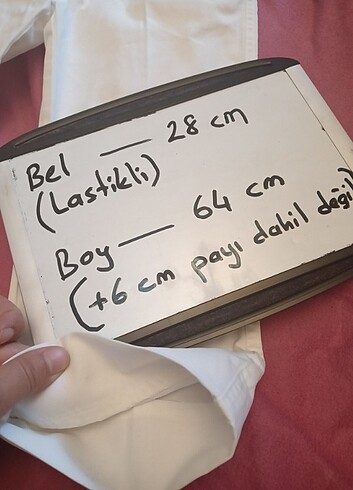 Bel — 28 cm
(Lastikli)
Boy — 64 cm
(+6 cm payı dahil değil)